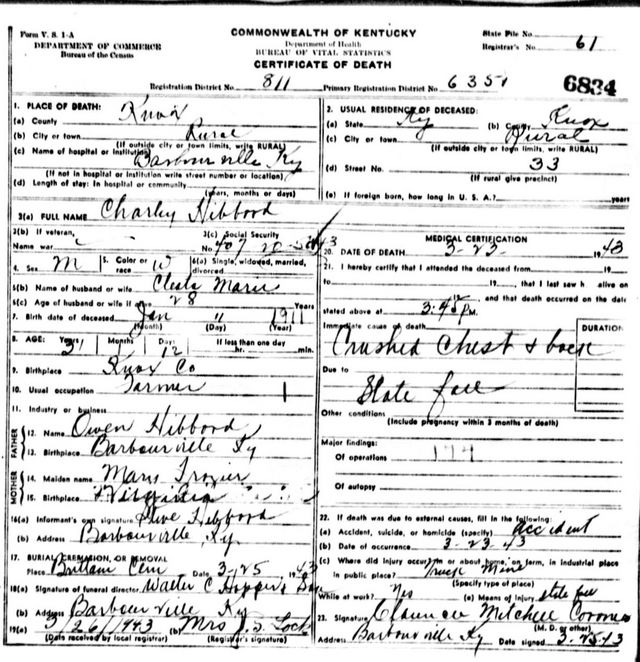 Form V. S. 1-A
DEPARTMENT OF COMMERCE
Bureau of the Census
COMMONWEALTH OF KENTUCKY
Department of Health
BUREAU OF VITAL STATISTICS
CERTIFICATE OF DEATH
State File No.
Registrar's No. 61
Registration District No. 811 Primary Registration District No. 6351
6834
1. PLACE OF DEATH:
(a) County Knox
(b) City or town Rural
(If outside city or town limits, write RURAL)
(c) Name of hospital or institution Barbourville Ky
(If not in hospital or institution write street number or location)
(d) Length of stay: In hospital or community
(years, months or days)
2. USUAL RESIDENCE OF DECEASED:
(a) State Ky (b) County Knox
(c) City or town Rural
(If outside city or town limits, write RURAL)
(d) Street No. 33
(If rural give precinct)
(e) If foreign born, how long in U. S. A.? years
3(a) FULL NAME Charley Hibbard
3(b) If veteran,
Name war
3(c) Social Security
No. 407
4. Sex M 5. Color or race W 6(a) Single, widowed, married, divorced
6(b) Name of husband or wife Marie
6(c) Age of husband or wife if alive 28 Years
7. Birth date of deceased Jan 11 1911
(Month) (Day) (Year)
8. AGE: Years 31 Months Days 12 If less than one day
hr. min.
9. Birthplace Knox Co
10. Usual occupation Farmer
11. Industry or business
FATHER
12. Name Owen Hibbard
13. Birthplace Barbourville Ky
MOTHER
14. Maiden name Mary Frozier
15. Birthplace Virginia
16(a) Informant's own signature Steve Hibbard
(b) Address Barbourville Ky.
17. BURIAL, CREMATION, OR REMOVAL
Place Brittain Cem Date 3-25 1943
18(a) Signature of funeral director Walter C Hopper
(b) Address Barbourville Ky
19(a) 3/26/1943 (b) Mrs J. S. Lock
(Date received by local registrar) (Registrar's signature)
MEDICAL CERTIFICATION
20. DATE OF DEATH 3-23 1943
21. I hereby certify that I attended the deceased from 19
to 19 , that I last saw h alive on
19 , and that death occurred on the date
stated above at 3:45 P.M.
Immediate cause of death
DURATION
Crushed Chest & back
Due to
Slate fall
Other conditions
(Include pregnancy within 3 months of death)
Major findings:
Of operations
Of autopsy
22. If death was due to external causes, fill in the following:
(a) Accident, suicide, or homicide (specify) Accident
(b) Date of occurrence 3-23-43
(c) Where did injury occur in or about home, on farm, in industrial place
in public place? Mine
(Specify type of place)
While at work? Yes (e) Means of injury slate fall
23. Signature Clarence Mitchell Coroner
(M. D. or other)
Address Barbourville Ky Date signed 3-25-43